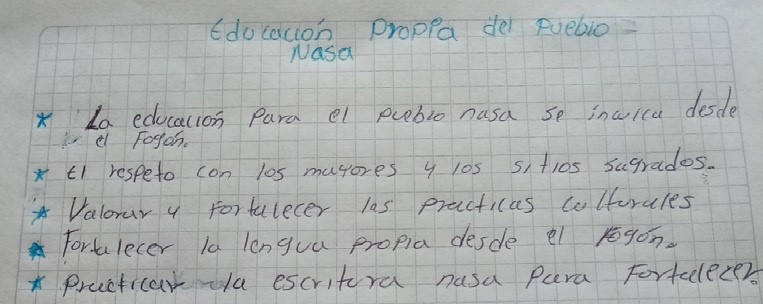 Educación Propia del Pueblo
Nasa
* La educación Para el pueblo nasa se inculca desde
el Fogón.
* El respeto con los mayores y los sitios sagrados.
* Valorar y Fortalecer las practicas culturales
* Fortalecer la lengua propia desde el Fogón.
* Practicar la escritura nasa Para Fortalecer.